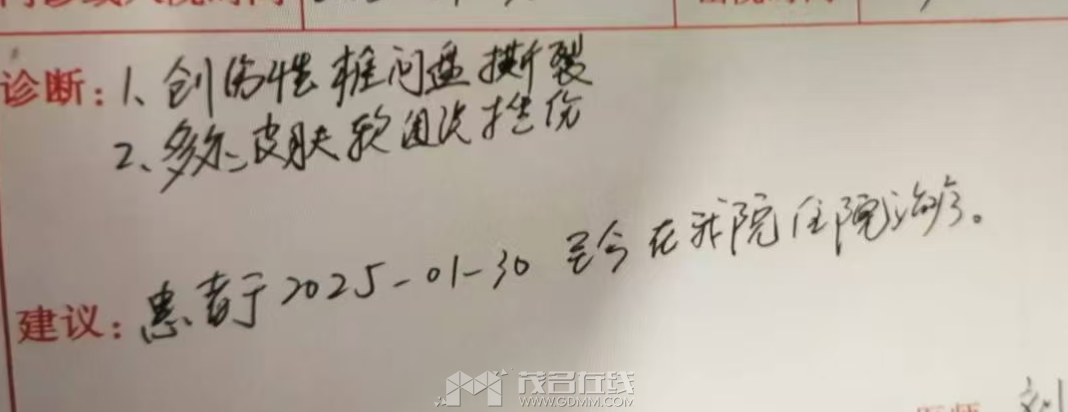 诊断：1、创伤性椎间盘撕裂
2、多处皮肤软组织挫伤
建议：患者于2025-01-30 至今在我院住院治疗。
茂名在线
WWW.GDMM.COM
刘